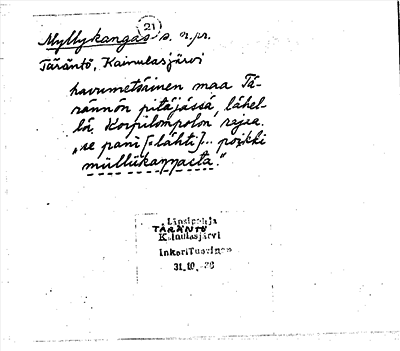 21
Myllykangas s. n.pr.
Täräntö, Kainulasjärvi
havumetsäinen maa Tä-
rännön pitäjässä, lähel-
lä Korpilompolon rajaa.
"se pani [= lähti]... poikki
müllükaŋŋasta."
Länsipohja
TÄRÄNTÖ
Kainulasjärvi
Inkeri Tuovinen
31.10.